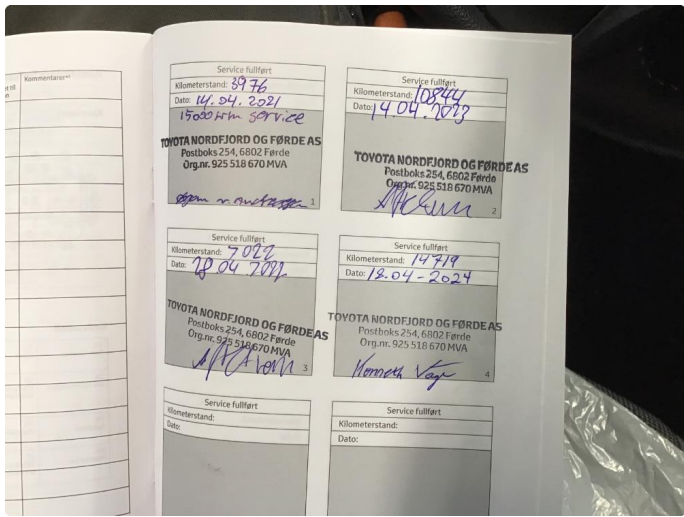 Kommentarer
Service fullført
Kilometerstand: 3976
Dato: 14.04.2021
15000 km service
TOYOTA NORDFJORD OG FØRDE AS
Postboks 254, 6802 Førde
Org.nr. 925 518 670 MVA
1
Service fullført
Kilometerstand: 10844
Dato: 14.04.2023
TOYOTA NORDFJORD OG FØRDE AS
Postboks 254, 6802 Førde
Org.nr. 925 518 670 MVA
2
Service fullført
Kilometerstand: 7022
Dato: 28.04.2022
TOYOTA NORDFJORD OG FØRDE AS
Postboks 254, 6802 Førde
Org.nr. 925 518 670 MVA
3
Service fullført
Kilometerstand: 14719
Dato: 18.04-2024
TOYOTA NORDFJORD OG FØRDE AS
Postboks 254, 6802 Førde
Org.nr. 925 518 670 MVA
Kenneth
4
Service fullført
Kilometerstand:
Dato:
Service fullført
Kilometerstand:
Dato: